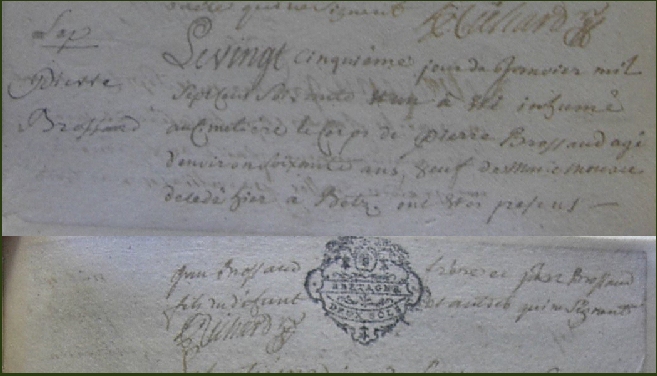 qui ne signent
Sep
pierre
Brossaud
Le vingt cinquième jour de Janvier mil
Sept Cent Soixante un a été inhumé
au Cimetiere le Corps de pierre Brossaud agé
d'environ Soixante ans, veuf de Marie
decedé hier à Botz. ont été presens —
Jean Brossaud frère et Jean Brossaud
fils du defunt et autres qui ne Signent
BRETAGNE
DEUX SOLS